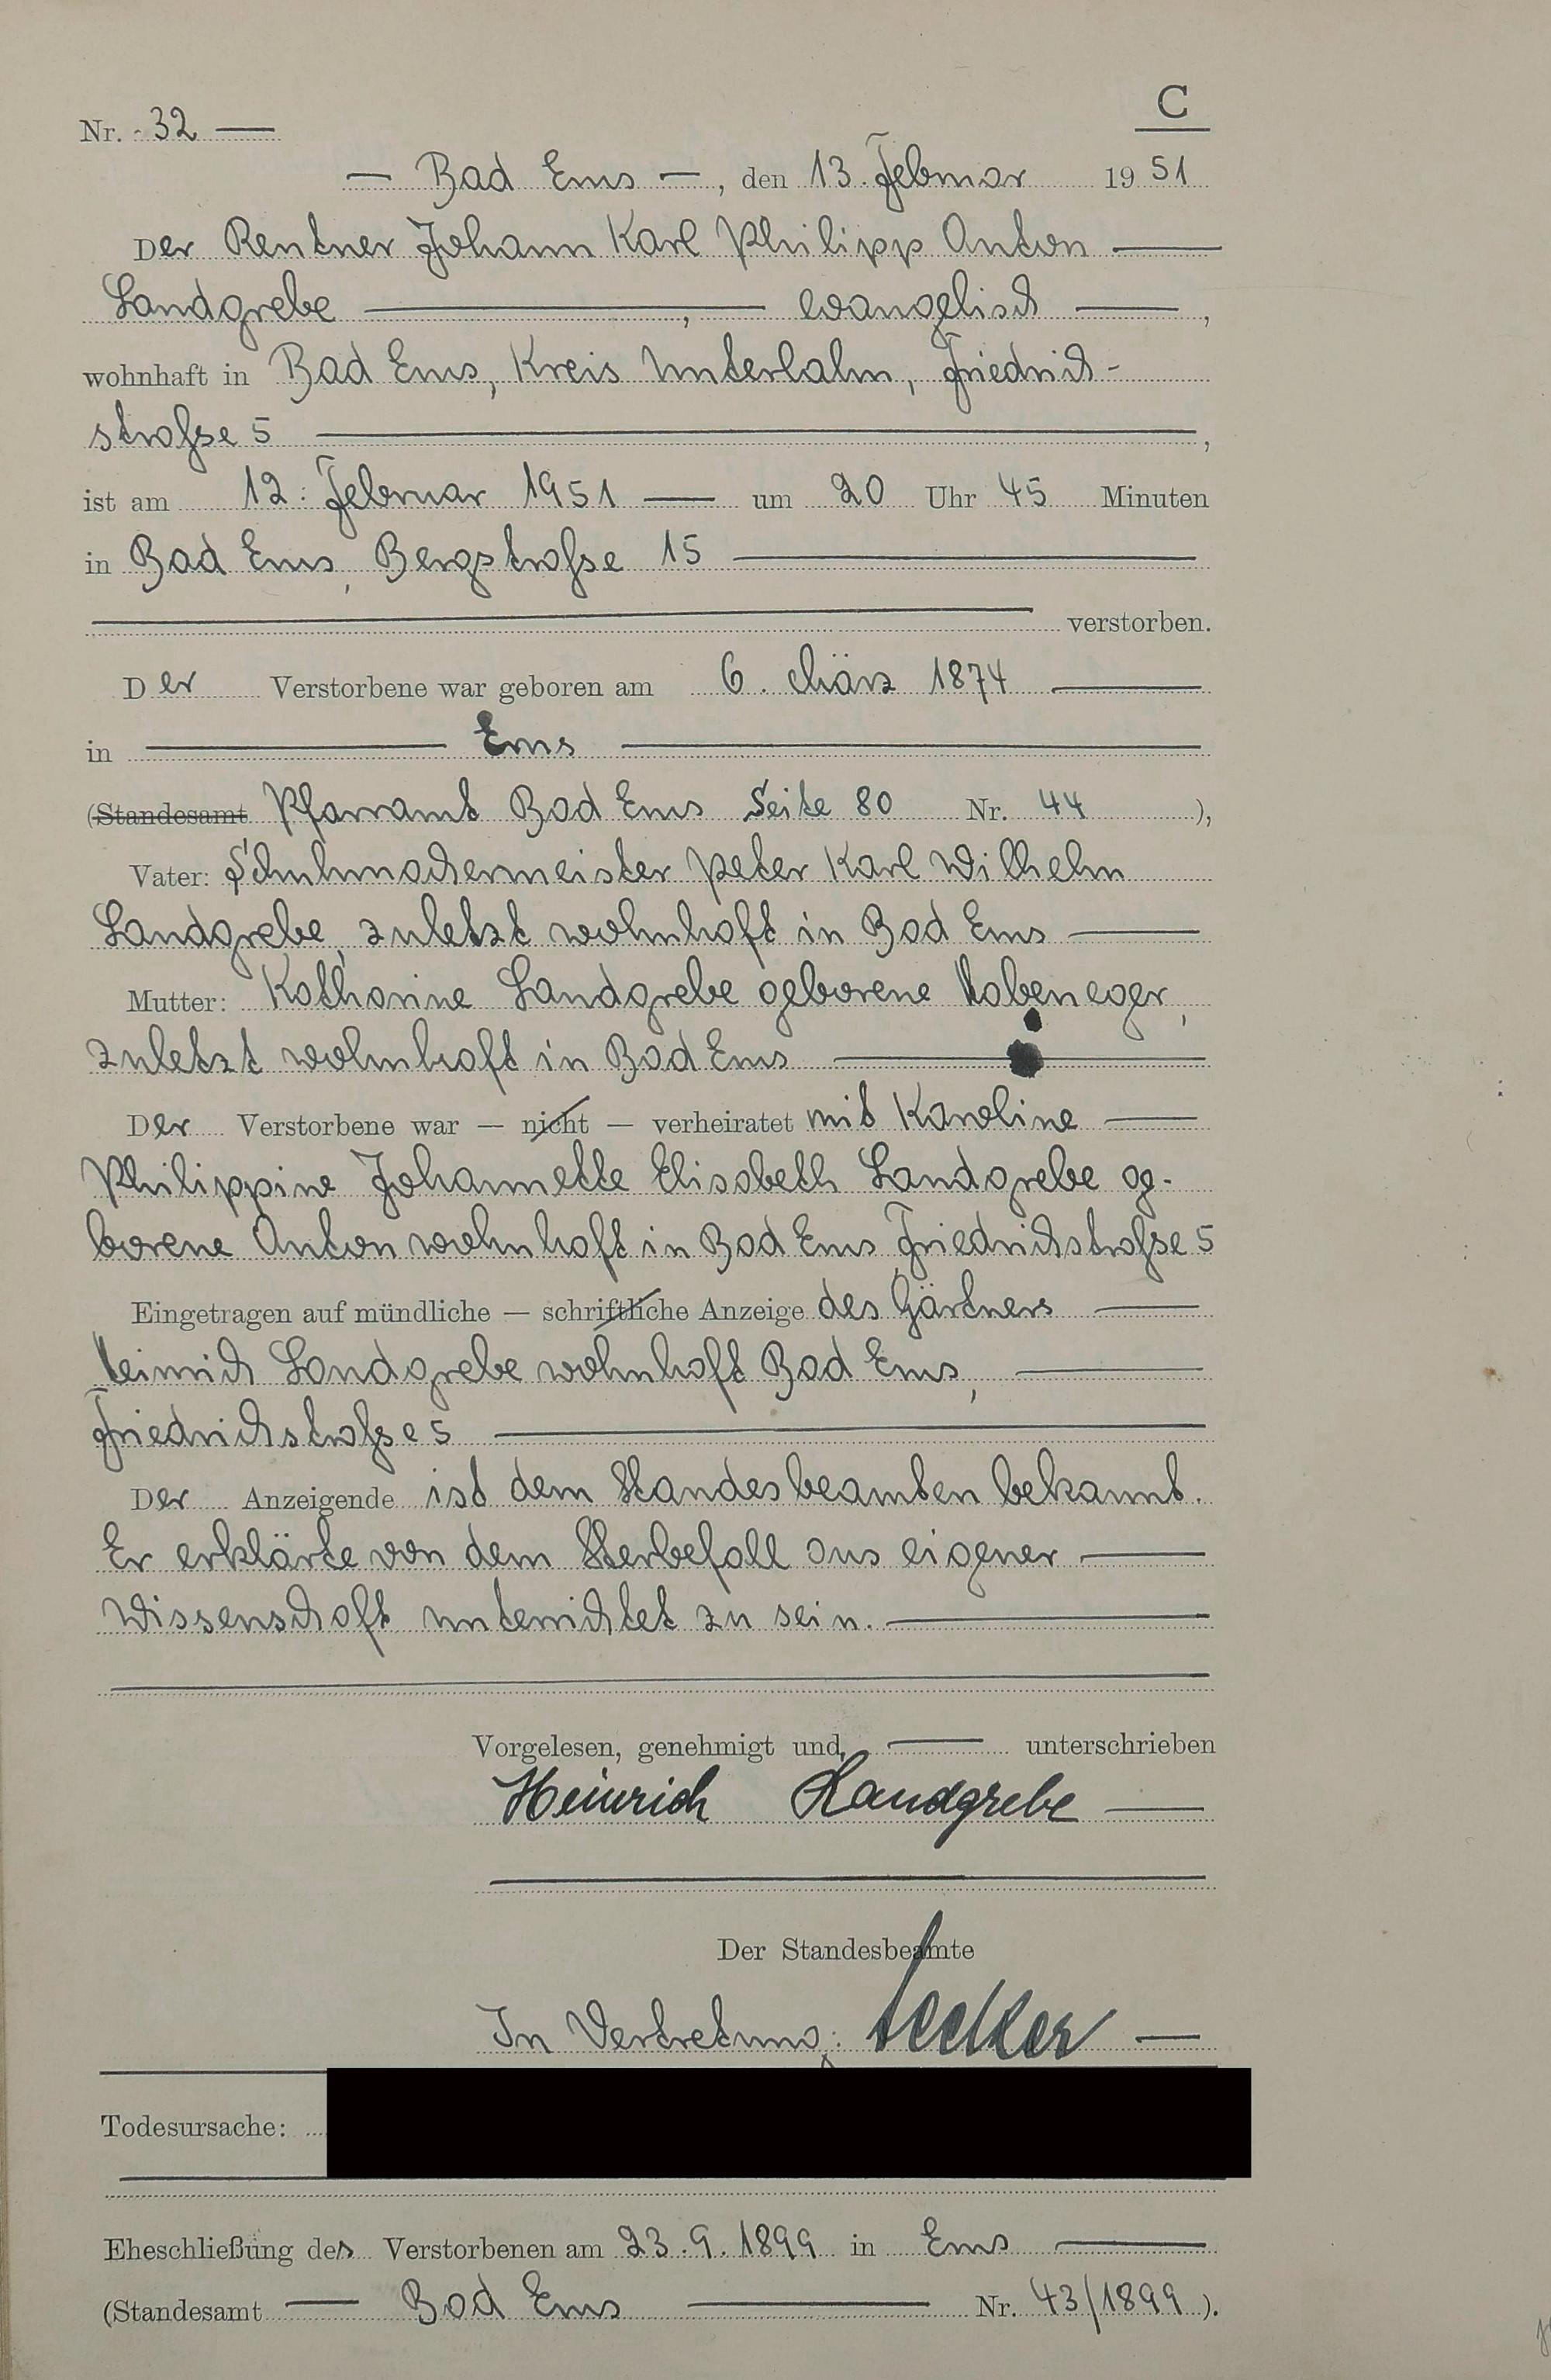 C
Nr. 32 —
— Bad Ems —, den 13. Februar 1951
Der Rentner Johann Karl Philipp Anton —
Landgrebe —, — evangelisch —,
wohnhaft in Bad Ems, Kreis Unterlahn, Friedrich-
strasse 5 —,
ist am 12. Februar 1951 — um 20 Uhr 45 Minuten
in Bad Ems, Bergstrasse 15 —
— verstorben.
Der Verstorbene war geboren am 6. März 1874 —
in — Ems —
(Standesamt Pfarramt Bad Ems Seite 80 Nr. 44),
Vater: Schuhmachermeister Peter Karl Wilhelm
Landgrebe, zuletzt wohnhaft in Bad Ems —
Mutter: Katharine Landgrebe geborene
zuletzt wohnhaft in Bad Ems —
Der Verstorbene war — nicht — verheiratet mit Karoline —
Philippine Johannette Elisabeth Landgrebe ge-
borene Anton wohnhaft in Bad Ems, Friedrichstrasse 5
Eingetragen auf mündliche — schriftliche Anzeige des Gärtners —
Heinrich Landgrebe wohnhaft Bad Ems, —
Friedrichstrasse 5 —
Der Anzeigende ist dem Standesbeamten bekannt.
Er erklärte von dem Sterbefall aus eigener —
Wissenschaft unterrichtet zu sein. —
Vorgelesen, genehmigt und — unterschrieben
Heinrich Landgrebe —
Der Standesbeamte
In Vertretung: —
Todesursache:
Eheschließung des Verstorbenen am 23.9.1899 in Ems —
(Standesamt — Bad Ems — Nr. 43/1899).